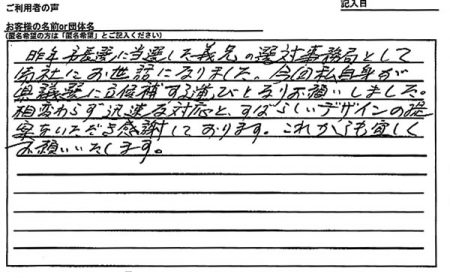 ご利用者の声
記入日
お客様の名前or団体名
(匿名希望の方は「匿名希望」とご記入ください)
昨年市長選に当選した義兄の選対事務局として
御社にお世話になりました。今回私自身が
県議選に立候補する運びとなりお願いしました。
相変わらず迅速な対応と、すばらしいデザインの提
案をいただき感謝しております。これからも宜しく
お願いいたします。